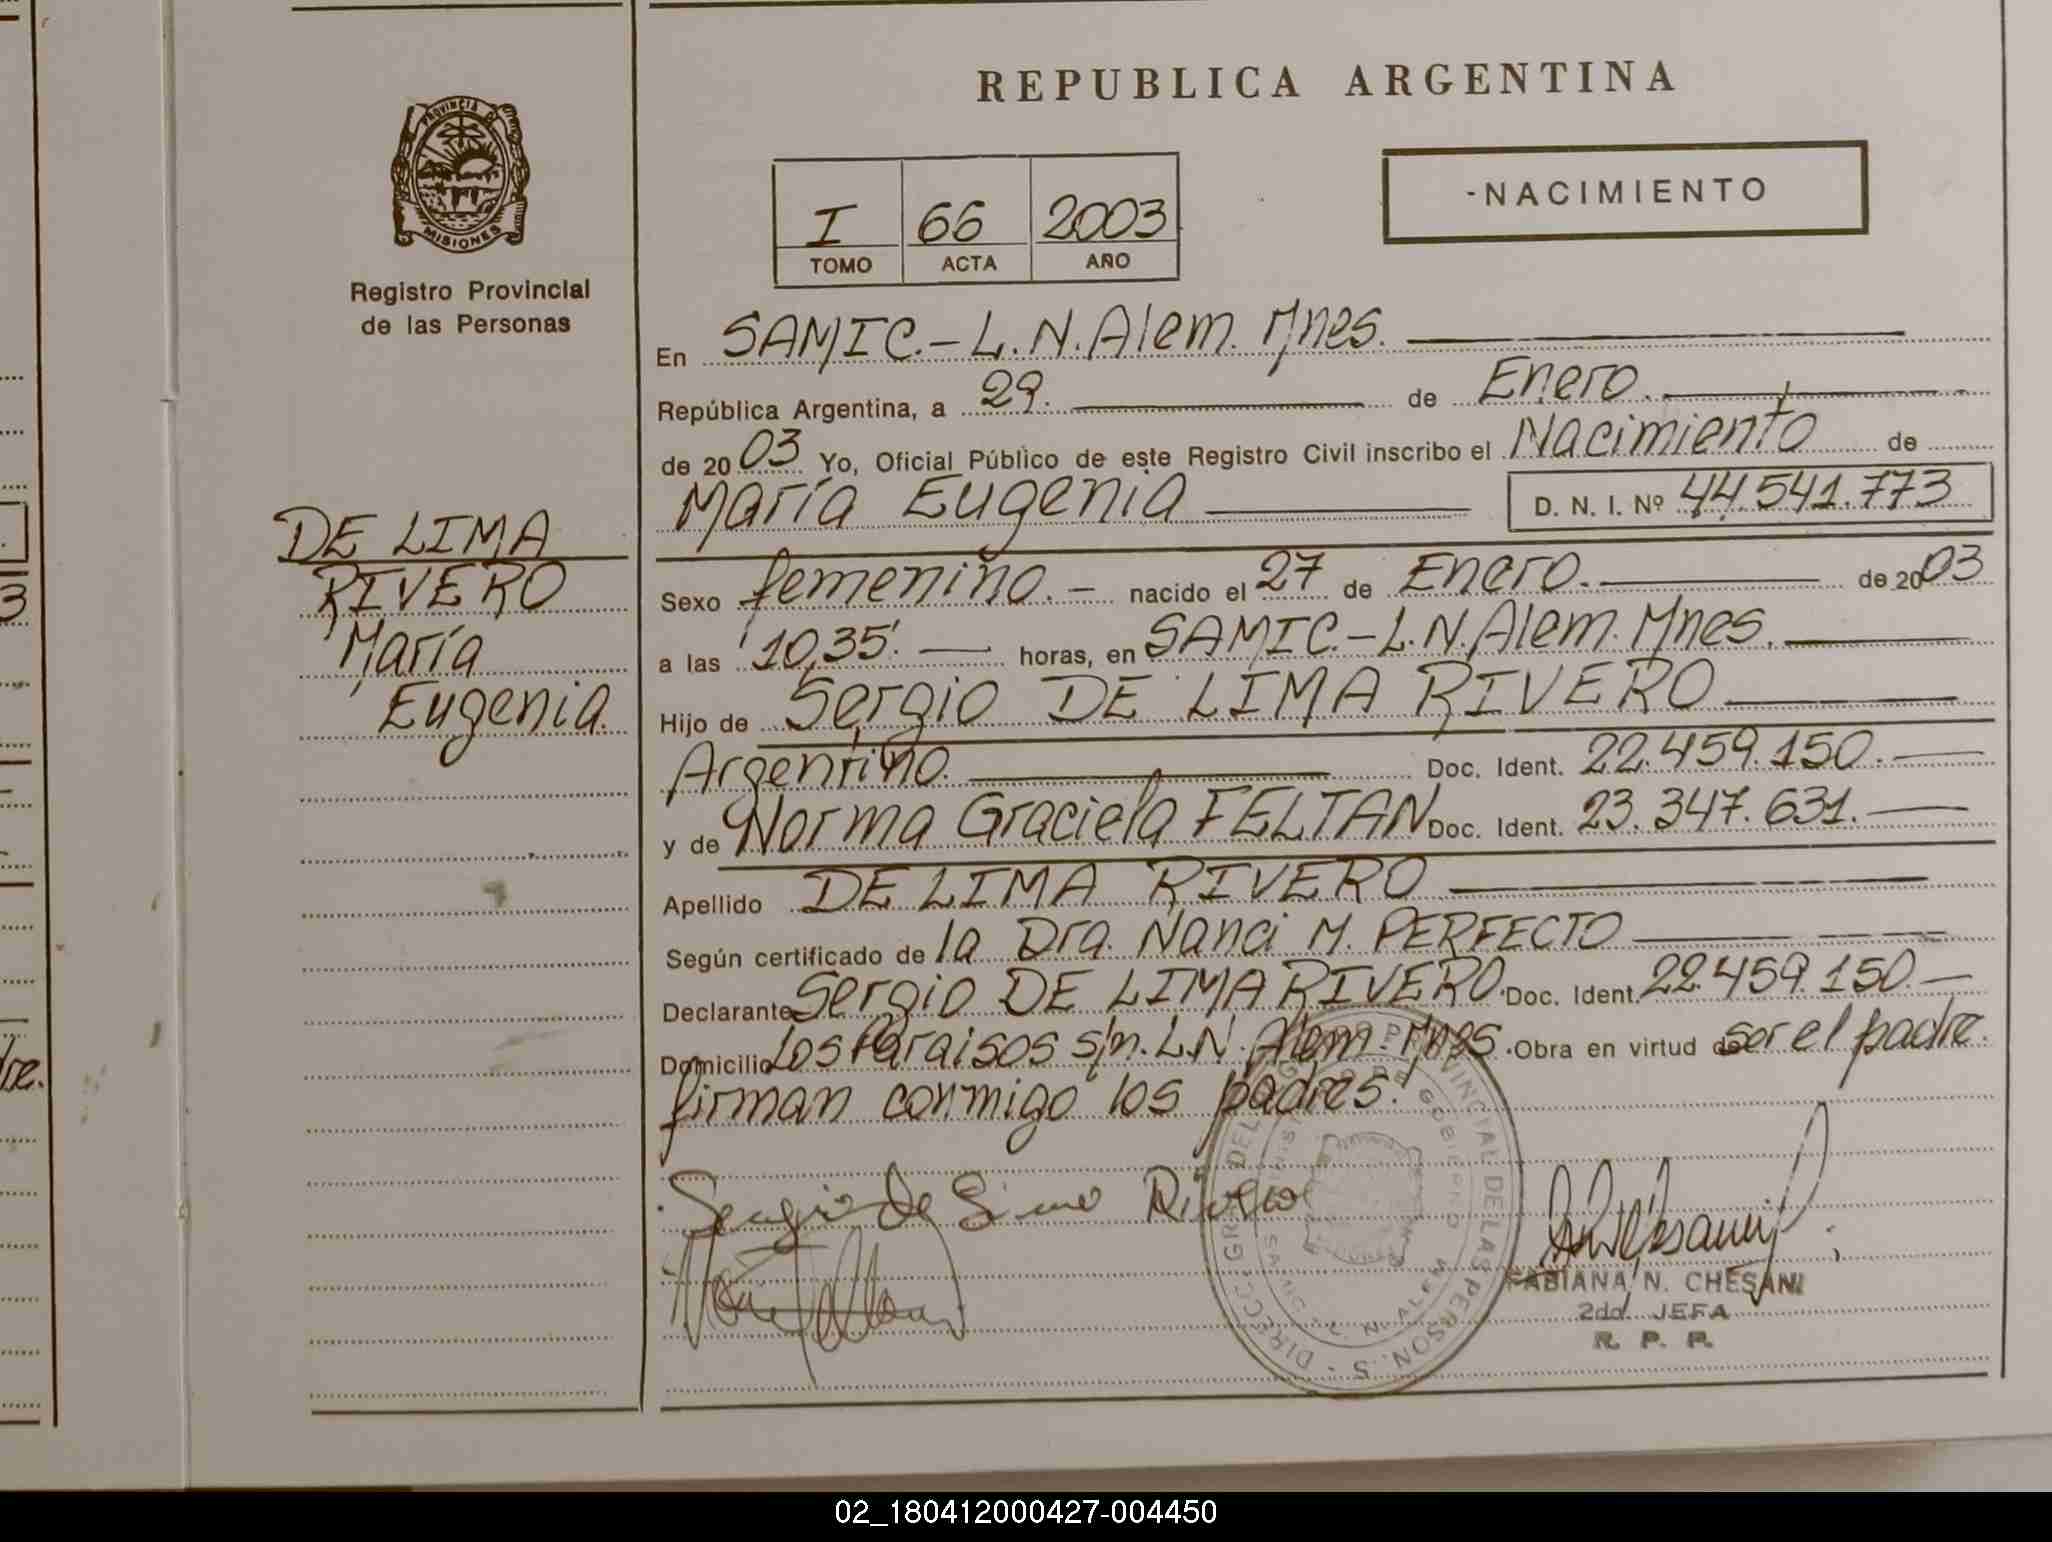 REPUBLICA ARGENTINA
-NACIMIENTO
PROVINCIA DE
MISIONES
Registro Provincial
de las Personas
I 66 2003
TOMO ACTA AÑO
En SAMIC.-L.N.Alem. Mnes.
República Argentina, a 29. de Enero.
de 2003 Yo, Oficial Público de este Registro Civil inscribo el Nacimiento de
María Eugenia D. N. I. Nº 44.541.773
DE LIMA
RIVERO
María
Eugenia.
Sexo femenino.- nacido el 27 de Enero. de 2003
a las 10,35'. horas, en SAMIC.-L.N.Alem. Mnes.
Hijo de Sergio DE LIMA RIVERO
Argentino. Doc. Ident. 22.459.150.-
y de Norma Graciela FELTAN Doc. Ident. 23.347.631.-
Apellido DE LIMA RIVERO
Según certificado de la Dra. Nanci M. PERFECTO
Declarante Sergio DE LIMA RIVERO. Doc. Ident. 22.459.150.-
Domicilio Los Paraisos s/n. L.N. Alem. Mnes. Obra en virtud de ser el padre.
firman conmigo los padres.
Sergio de Lima Rivero
FABIANA N. CHESANI
2da. JEFA
R. P. P.
3
dre.
02_180412000427-004450